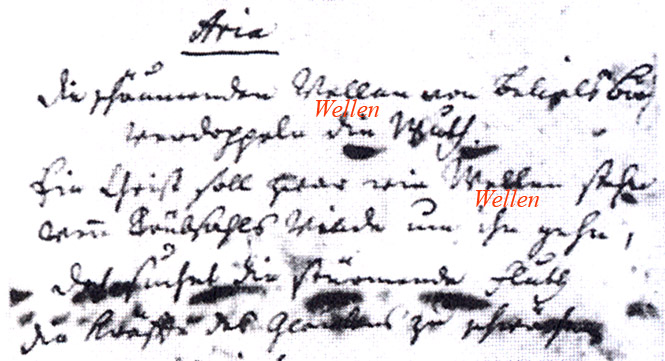 Aria
Die schäumenden Wellen von Belials
Wellen
verdoppeln die Wuth.
Ein Christ soll zwar wie Wellen stehn
Wellen
wen̄ Trübsahls Winde um ihn gehn,
doch suchet die stürmende Fluth
die Kräffte des Glaubens zu schwächen